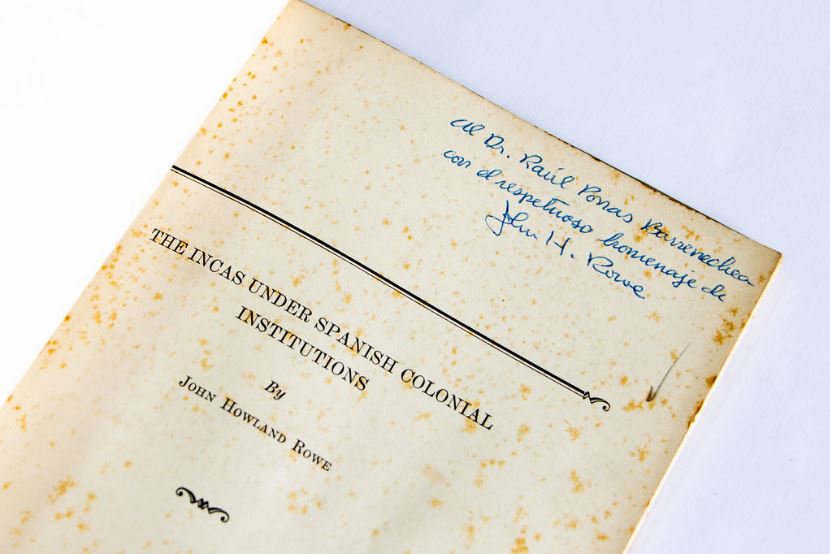 al Dr. Raúl Porras Barrenechea
con el respetuoso homenaje de
John H. Rowe
THE INCAS UNDER SPANISH COLONIAL
INSTITUTIONS
By
JOHN HOWLAND ROWE